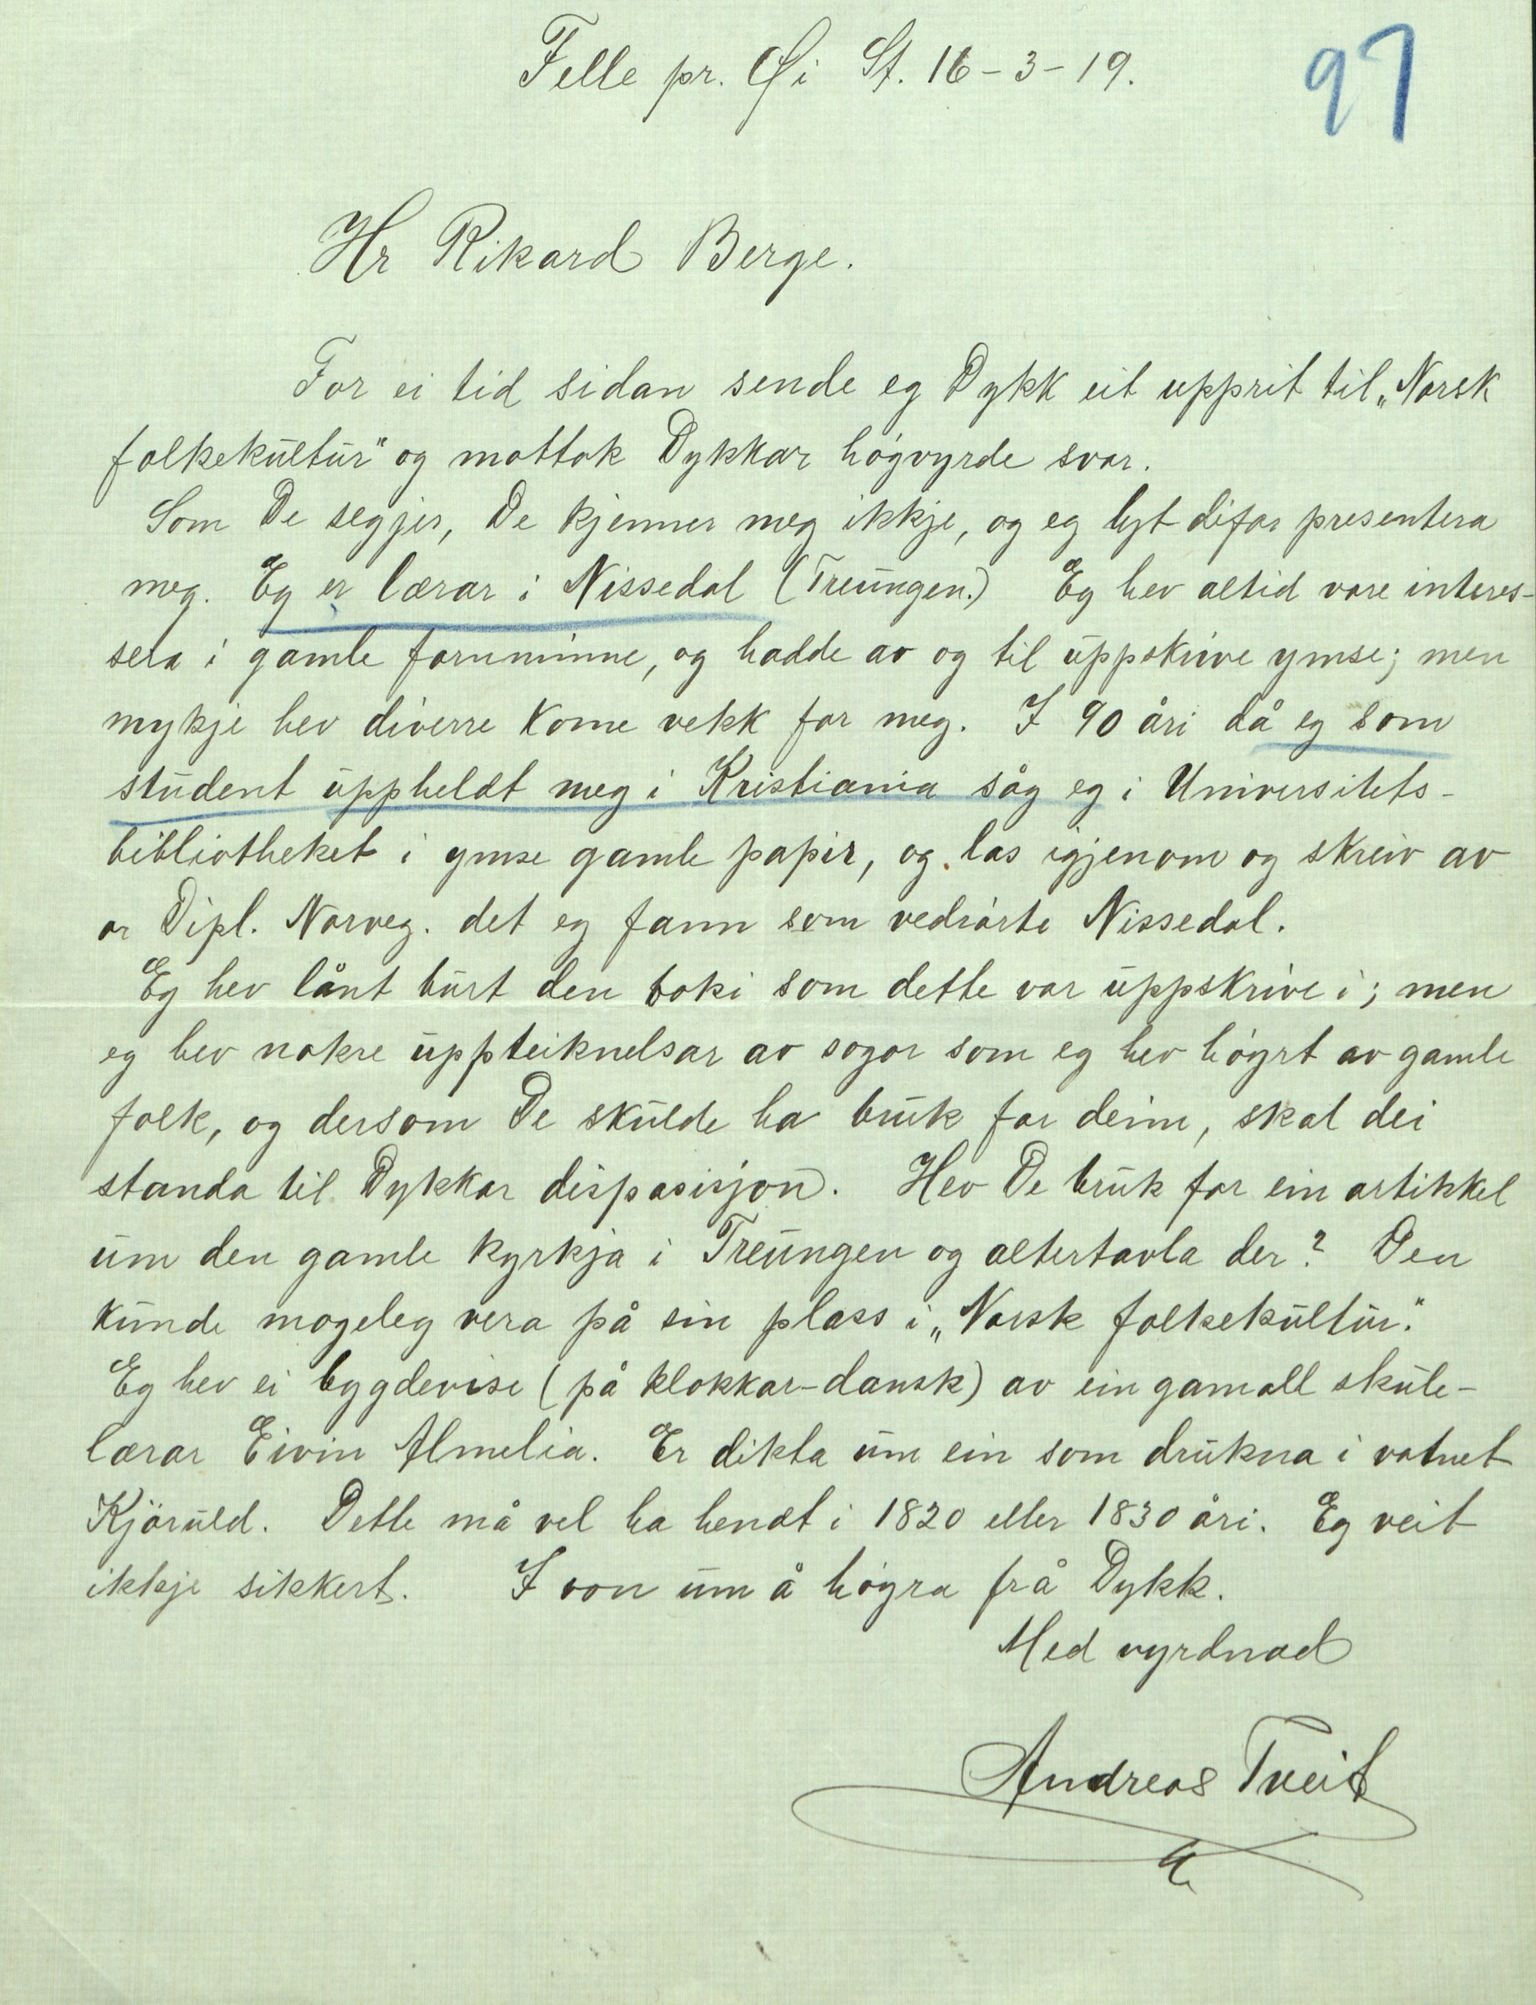 Felle pr. Øi St. 16-3-19.
97
Hr Rikard Berge.
For ei tid sidan sende eg Dykk eit upprit til „Norsk
folkekultur" og mottok Dykkar högvyrde svar.
Som De segjer, De kjenner meg ikkje, og eg lyt difor presentera
meg. Eg er lærar i Nissedal (Treungen.) Eg hev altid vore interes-
sera i gamle fornminne, og hadde av og til uppskrive ymse; men
mykje hev diverre kome vekk for meg. I 90 åri då eg som
student uppheldt meg i Kristiania såg eg i Universitets-
bibliotheket i ymse gamle papir, og las igjenom og skreiv av
or Dipl. Norveg. det eg fann som vedrörte Nissedal.
Eg hev lånt burt den boki som dette var uppskrive i; men
eg hev nokre uppteiknelsar av sogor som eg hev höyrt av gamle
folk, og dersom De skulde ha bruk for deim, skal dei
standa til Dykkar disposisjon. Hev De bruk for ein artikkel
um den gamle kyrkja i Treungen og altertavla der? Den
kunde mogeleg vera på sin plass i „Norsk folkekultur".
Eg hev ei bygdevise (på klokkar-dansk) av ein gamall skule-
lærar Eivin Almelia. Er dikta um ein som drukna i vatnet
Kjöruld. Dette må vel ha hendt i 1820 eller 1830 åri. Eg veit
ikkje sikkert. I von um å höyra frå Dykk.
Med vyrdnad
Andreas Tveit